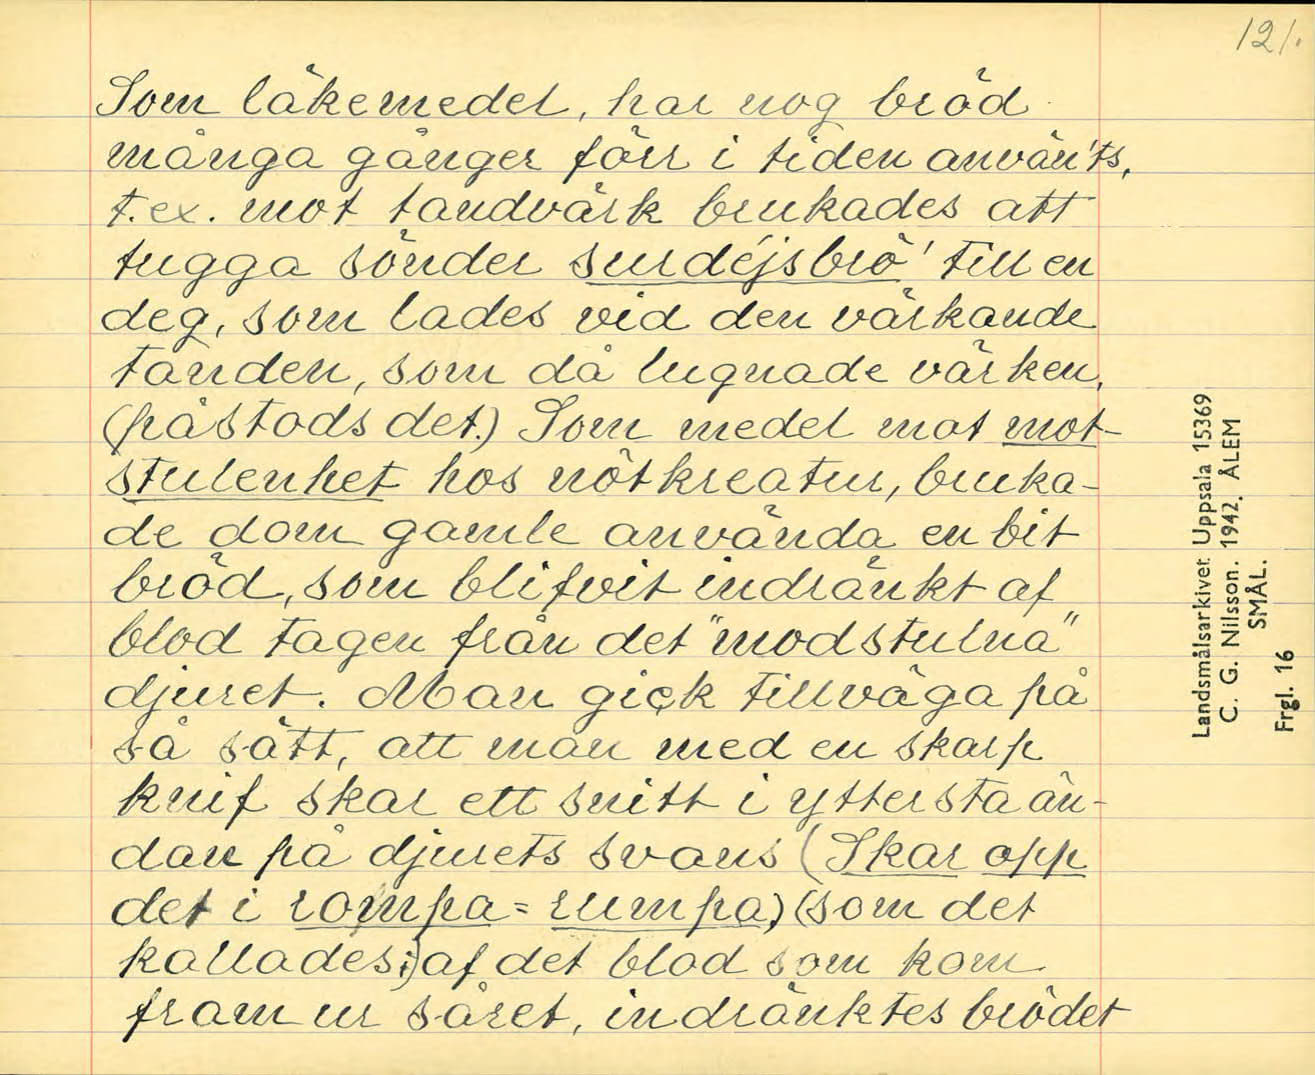 121.
Som läkemedel, har nog bröd
många gånger förr i tiden använ'ts,
t.ex. mot tandvärk brukades att
tugga sönder surdéjsbrö' till en
deg, som lades vid den värkande
tanden, som då lugnade värken,
(påstods det.) Som medel mot mot-
stulenhet hos nötkreatur, bruka-
de dom gamle använda en bit
bröd, som blifvit indränkt af
blod tagen från det "modstulna"
djuret. Man gick tillväga på
så sätt, att man med en skarp
knif skar ett snitt i yttersta än-
dan på djurets svans (Skar opp
det i rompa = rumpa,) (som det
kallades;) af det blod som kom
fram ur såret, indränktes brödet
Landsmålsarkivet Uppsala 15369
C. G. Nilsson. 1942. ÅLEM
SMÅL.
Frgl. 16